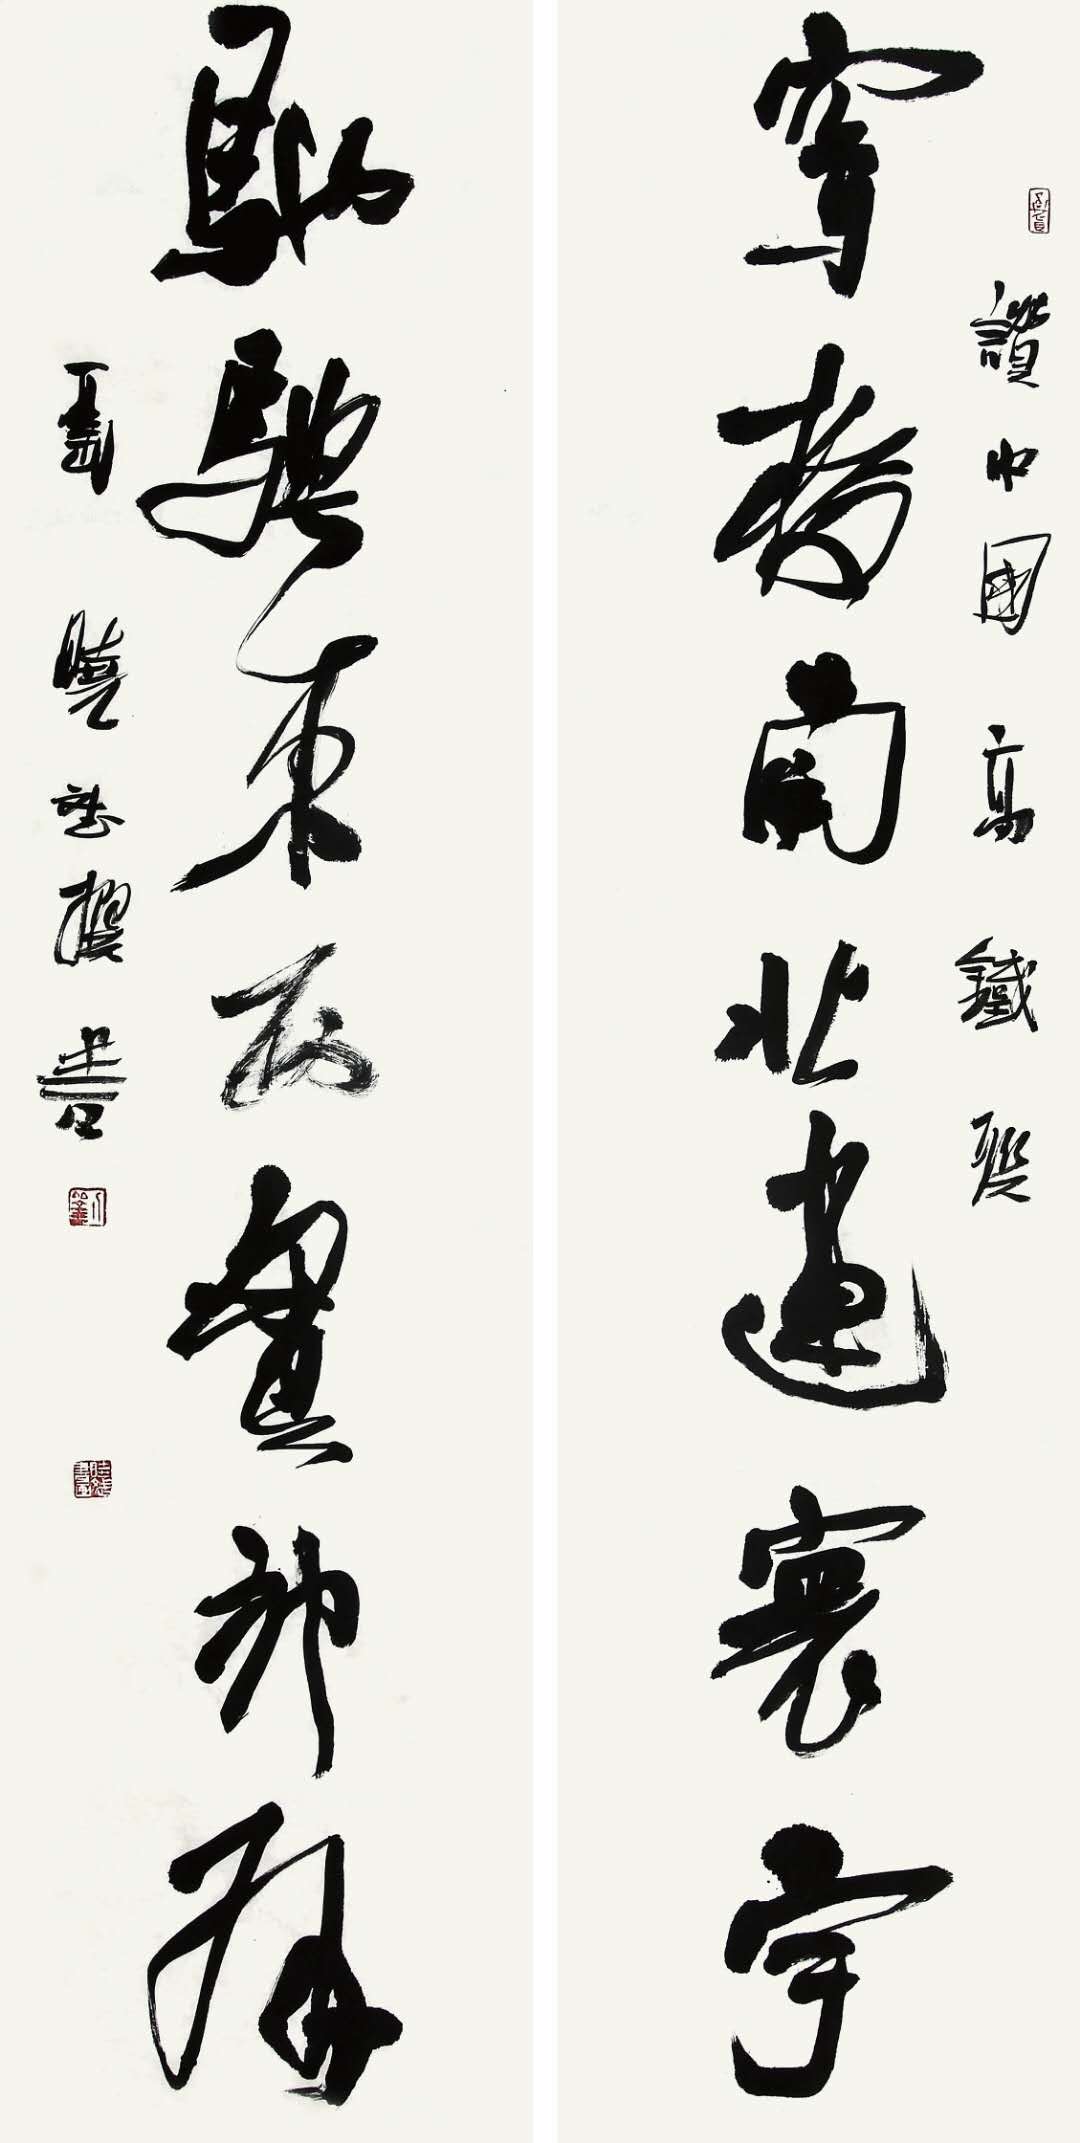 讚中國高鐵聯
穿梭南北連寰宇
馳騁東西貫神州
劉曉 撰書